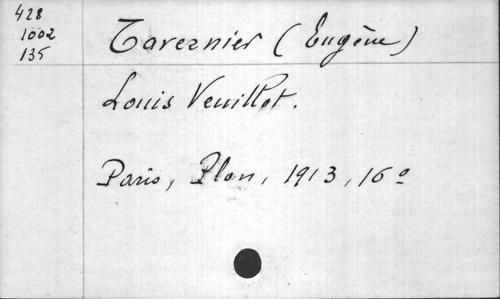 428
1002
135
Tavernier (Eugène)
Louis Veuillot.
Paris, Plon, 1913, 16º